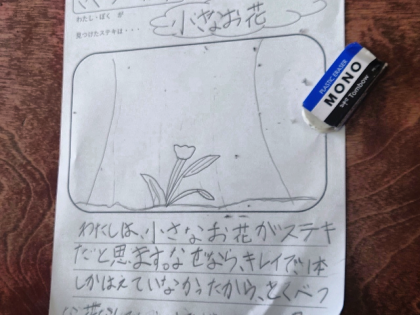 わたし・ぼく が
見つけたステキは・・・
小さなお花
PLASTIC ERASER
MONO
Tombow
わたしは、小さなお花がステキ
だと思います。なぜなら、キレイで、1本
しかはえていなかったから、とくべつ